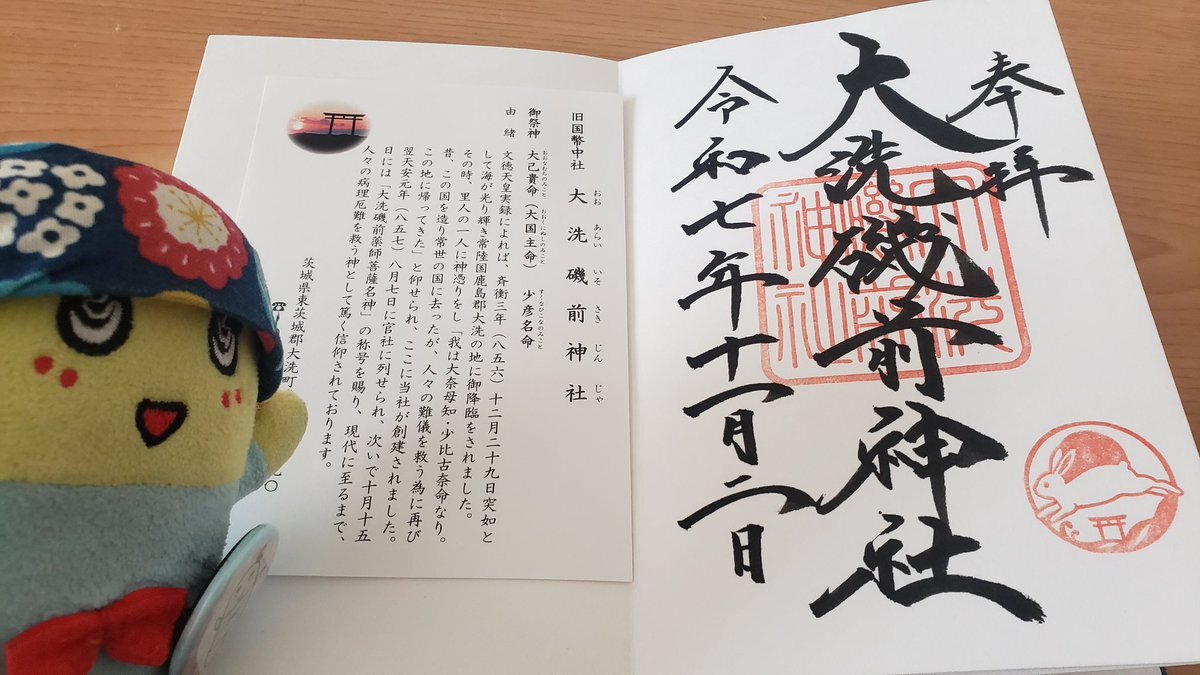 奉拝
大洗磯前神社
令和七年十一月二日
旧国幣中社 大洗磯前神社
おお あらい いそ さき じん じゃ
御祭神 大己貴命(大国主命) 少彦名命
おおなむちのみこと おおくにぬしのみこと すくなひこなのみこと
由緒 文徳天皇実録によれば、斉衡三年(八五六)十二月二十九日突如と
して海が光り輝き常陸国鹿島郡大洗の地に御降臨をされました。
その時、里人の一人に神憑りをし「我は大奈母知・少比古奈命なり。
昔、この国を造り常世の国に去ったが、人々の難儀を救う為に再び
この地に帰ってきた」と仰せられ、ここに当社が創建されました。
翌天安元年(八五七)八月七日に官社に列せられ、次いで十月十五
日には「大洗磯前薬師菩薩名神」の称号を賜り、現代に至るまで、
人々の病理厄難を救う神として篤く信仰されております。
茨城県東茨城郡大洗町
☎
〇